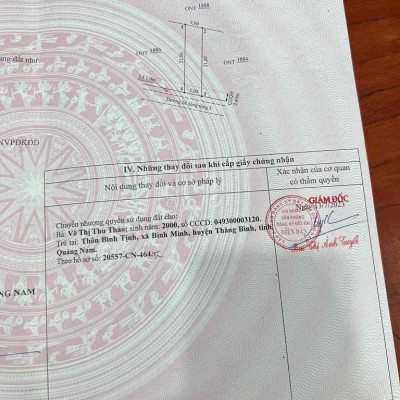 ONT 1888
5,00
ONT 1886
ONT 1884
21,00
21,00
5,00
ung đất như
NVPĐKĐĐ
IV. Những thay đổi sau khi cấp giấy chứng nhận
Nội dung thay đổi và cơ sở pháp lý
Xác nhận của cơ quan
có thẩm quyền
Chuyển nhượng quyền sử dụng đất cho:
Bà: Võ Thị Thu Thảo; sinh năm: 2000, số CCCD: 049300003120.
Trú tại: Thôn Bình Tịnh, xã Bình Minh, huyện Thăng Bình, tỉnh
Quảng Nam.
Theo hồ sơ số: 20557-CN-464
Ngày
/2023
GIÁM ĐỐC
CHI NHÁNH
VĂN PHÒNG
ĐĂNG KÝ ĐẤT ĐAI
ĐIỆN BÀN
Thị Ánh Tuyết
NG NAM